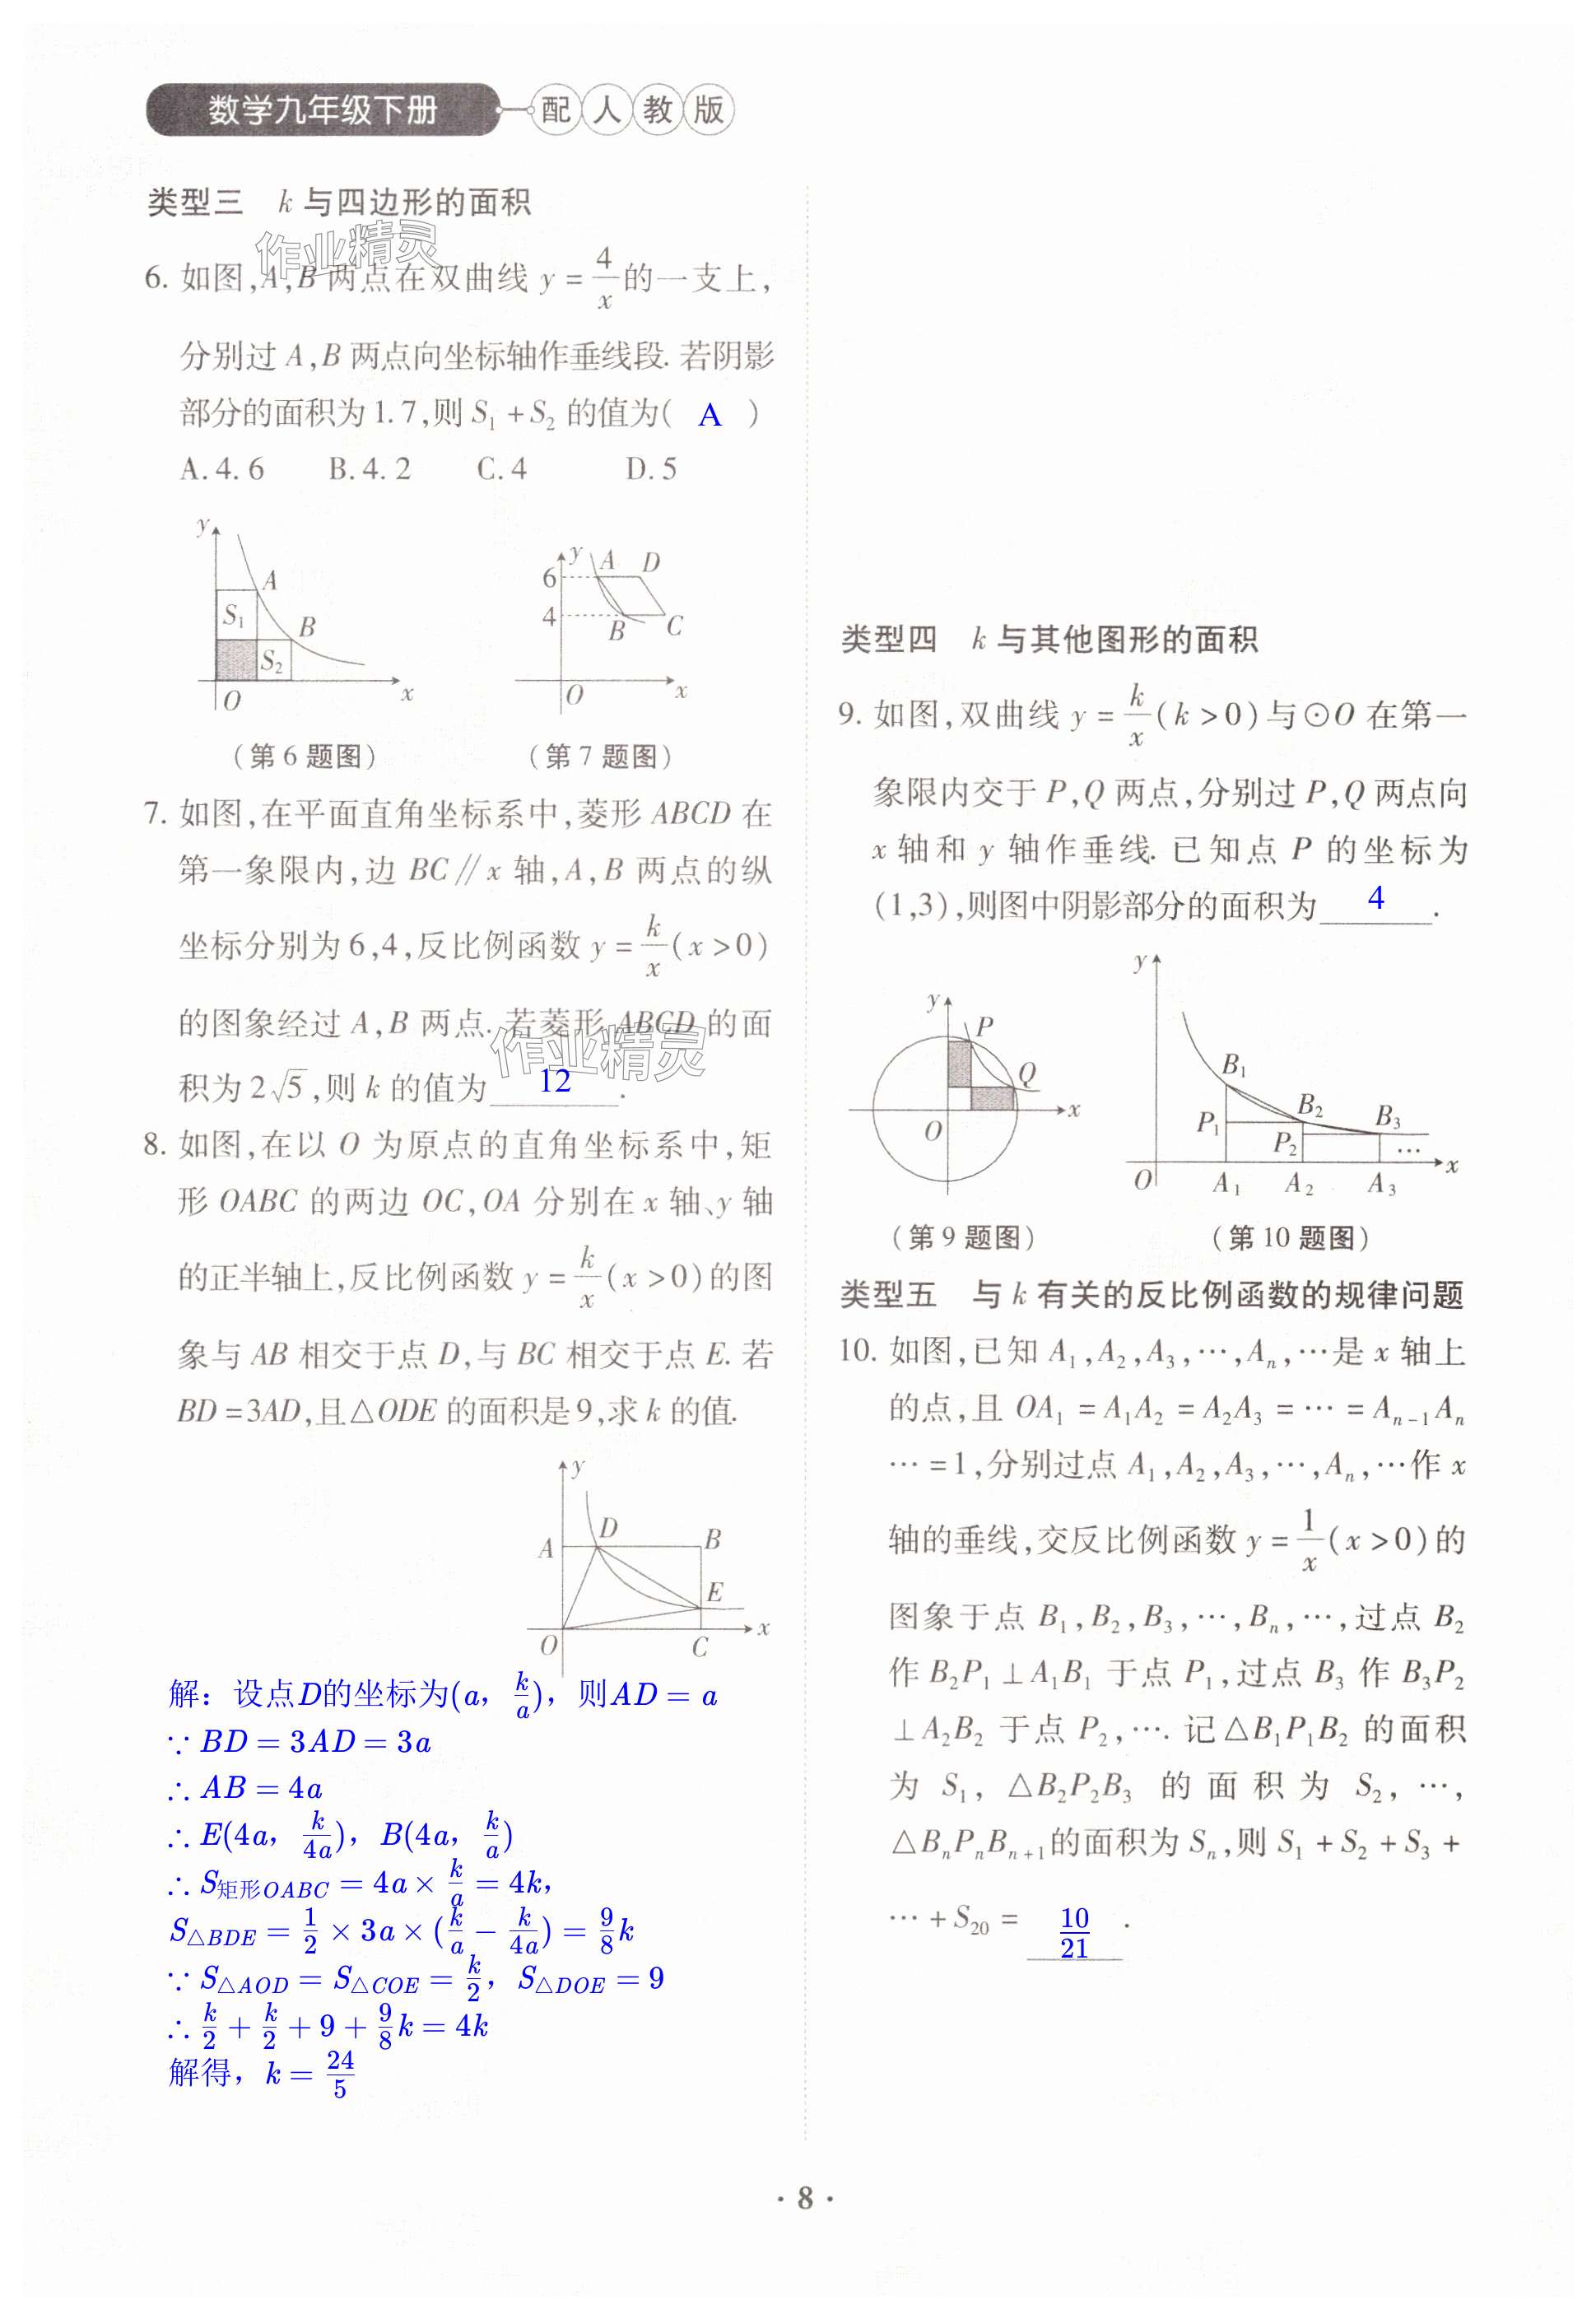 数学九年级下册 配人教版
类型三 k与四边形的面积
作业精灵
6. 如图,A,B两点在双曲线 y=4/x 的一支上,
分别过A,B两点向坐标轴作垂线段. 若阴影
部分的面积为1.7,则S₁+S₂的值为( A )
A.4.6 B.4.2 C.4 D.5
y A S₁ B S₂ O x
y A D 6 4 B C O x
(第6题图) (第7题图)
7. 如图,在平面直角坐标系中,菱形ABCD在
第一象限内,边BC∥x轴,A,B两点的纵
坐标分别为6,4,反比例函数 y=k/x(x>0)
的图象经过A,B两点. 若菱形ABCD的面
作业精灵
积为2√5,则k的值为 12 .
8. 如图,在以O为原点的直角坐标系中,矩
形OABC的两边OC,OA分别在x轴、y轴
的正半轴上,反比例函数 y=k/x(x>0)的图
象与AB相交于点D,与BC相交于点E. 若
BD=3AD,且△ODE的面积是9,求k的值.
y A D B E O C x
解：设点D的坐标为(a，k/a)，则AD=a
∵BD=3AD=3a
∴AB=4a
∴E(4a，k/4a)，B(4a，k/a)
∴S矩形OABC=4a×k/a=4k，
S△BDE=1/2×3a×(k/a-k/4a)=9/8k
∵S△AOD=S△COE=k/2，S△DOE=9
∴k/2+k/2+9+9/8k=4k
解得，k=24/5
类型四 k与其他图形的面积
9. 如图,双曲线 y=k/x(k>0)与⊙O在第一
象限内交于P,Q两点,分别过P,Q两点向
x轴和y轴作垂线. 已知点P的坐标为
(1,3),则图中阴影部分的面积为 4 .
y P Q O x
y B₁ B₂ B₃ P₁ P₂ … O A₁ A₂ A₃ x
(第9题图) (第10题图)
类型五 与k有关的反比例函数的规律问题
10. 如图,已知A₁,A₂,A₃,…,Aₙ,…是x轴上
的点,且OA₁=A₁A₂=A₂A₃=…=Aₙ₋₁Aₙ
…=1,分别过点A₁,A₂,A₃,…,Aₙ,…作x
轴的垂线,交反比例函数 y=1/x(x>0)的
图象于点B₁,B₂,B₃,…,Bₙ,…,过点B₂
作B₂P₁⊥A₁B₁于点P₁,过点B₃作B₃P₂
⊥A₂B₂于点P₂,…. 记△B₁P₁B₂的面积
为S₁,△B₂P₂B₃的面积为S₂,…,
△BₙPₙBₙ₊₁的面积为Sₙ,则S₁+S₂+S₃+
…+S₂₀= 10/21 .
· 8 ·